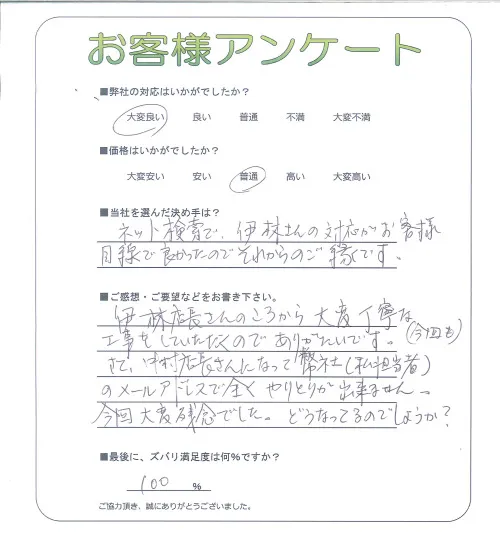 お客様アンケート
■弊社の対応はいかがでしたか？
大変良い 良い 普通 不満 大変不満
■価格はいかがでしたか？
大変安い 安い 普通 高い 大変高い
■当社を選んだ決め手は？
ネット検索で、伊林さんの対応がお客様
目線で良かったのでそれからのご縁です。
■ご感想・ご要望などをお書き下さい。
伊林店長さんのころから大変丁寧な
工事をしていただくのでありがたいです。(今回も)
さて、中村店長さんになって弊社(私担当者)
のメールアドレスで全くやりとりが出来ません。
今回大変残念でした。どうなってるのでしょうか？
■最後に、ズバリ満足度は何％ですか？
100 %
ご協力頂き、誠にありがとうございました。